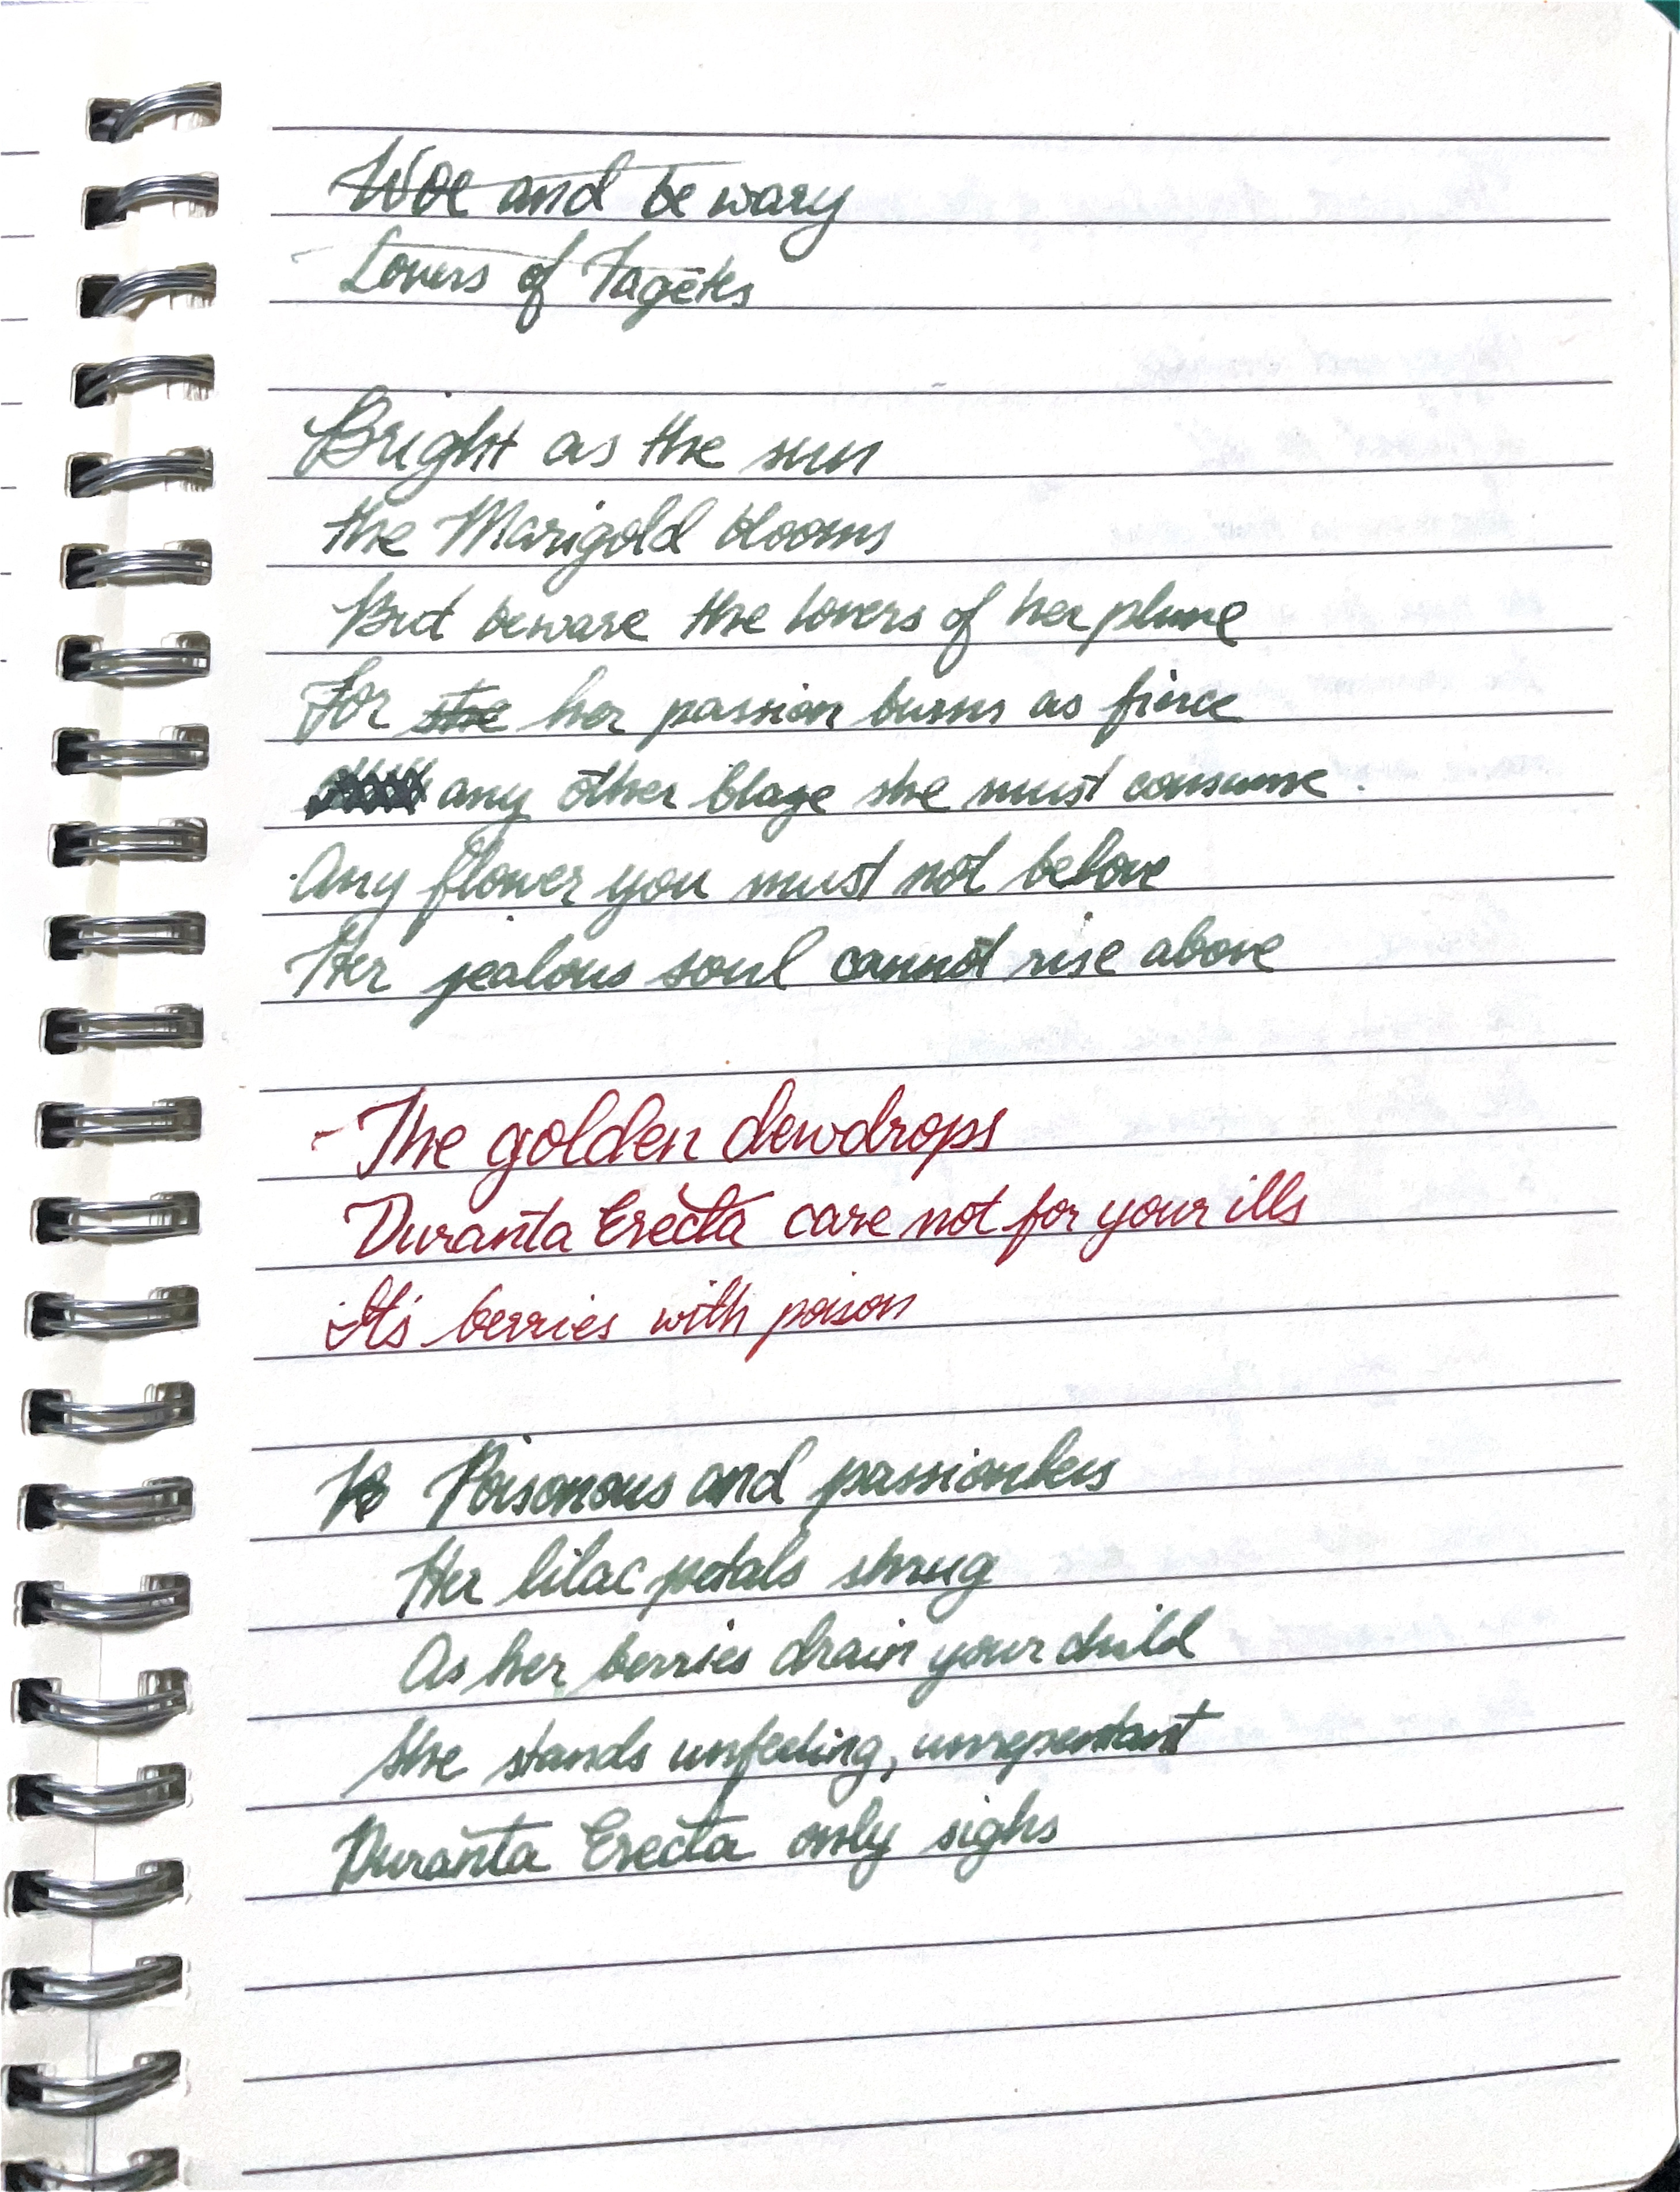 Woe and be wary
Lovers of Tagetes
Bright as the sun
the Marigold blooms
But beware the lovers of her plume
For she her passion burns as fierce
any other blaze she must consume.
Any flower you must not belove
Her jealous soul cannot rise above
- The golden dewdrops
Duranta Erecta care not for your ills
It's berries with poison
Poisonous and passionless
Her lilac petals shrug
As her berries drain your child
She stands unfeeling, unrepentant
Duranta Erecta only sighs